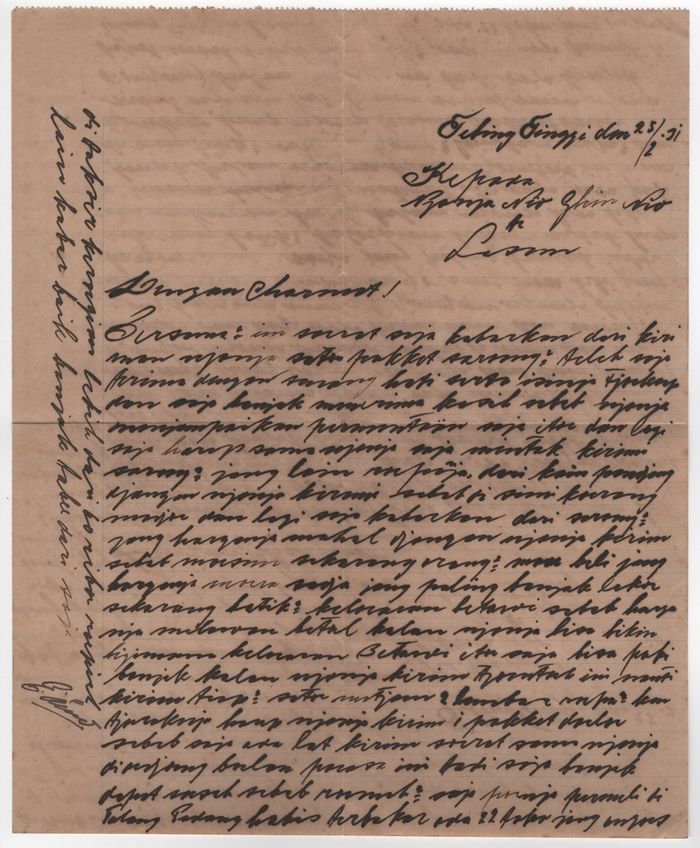 Tebing Tinggi den 25/2.31
Kepada
Njonja Nio Nio
di
Lasem
Dengan Chormat!
Bersama2 ini soerat saja kabarken dari kiri
man njonja satoe pakket sarong2 telah saja
terima dengan senang hati serta isinja tjoekoep
dan saja banjak menerima kasih sebab njonja
menjampaikan permentaän saja itoe dan lagi
saja harap sama njonja saja mintak kirimi
sarong2 jang lain roepanja, dari kain pandjang
djangan njonja kirimi sebab di sini koerang
madjoe dan lagi saja kabarken dari sarong2
jang harganja mahal djangan njonja kirim
sebab moesim sekarang orang2 maoe beli jang
harganja moera sadja jang paling banjak lakoe
sekarang batik2 keloearan betawi sebab harga
nja melawan betal kalau njonja bisa bikin
bijimana keloearan Betawi itoe saja bisa pake
banjak kalau njonja kirim tjontoh ini nanti
kirim tiap2 satoe matjem 2 lembar roepa2 kan
tjoraknja harap njonja kirim 1 pakket doeloe
sebab saja ada lat kirim soerat sama njonja
di oedjoeng boelan poeasa ini tadi saja banjak
dapat soesah sebab roemah2 saja poenja pamili di
Padang habis terbakar ada 22 toko jang angoes
di taksir keroegian lebih dari riboe roepiah
Lain kabar baik banjak tabee dari saja